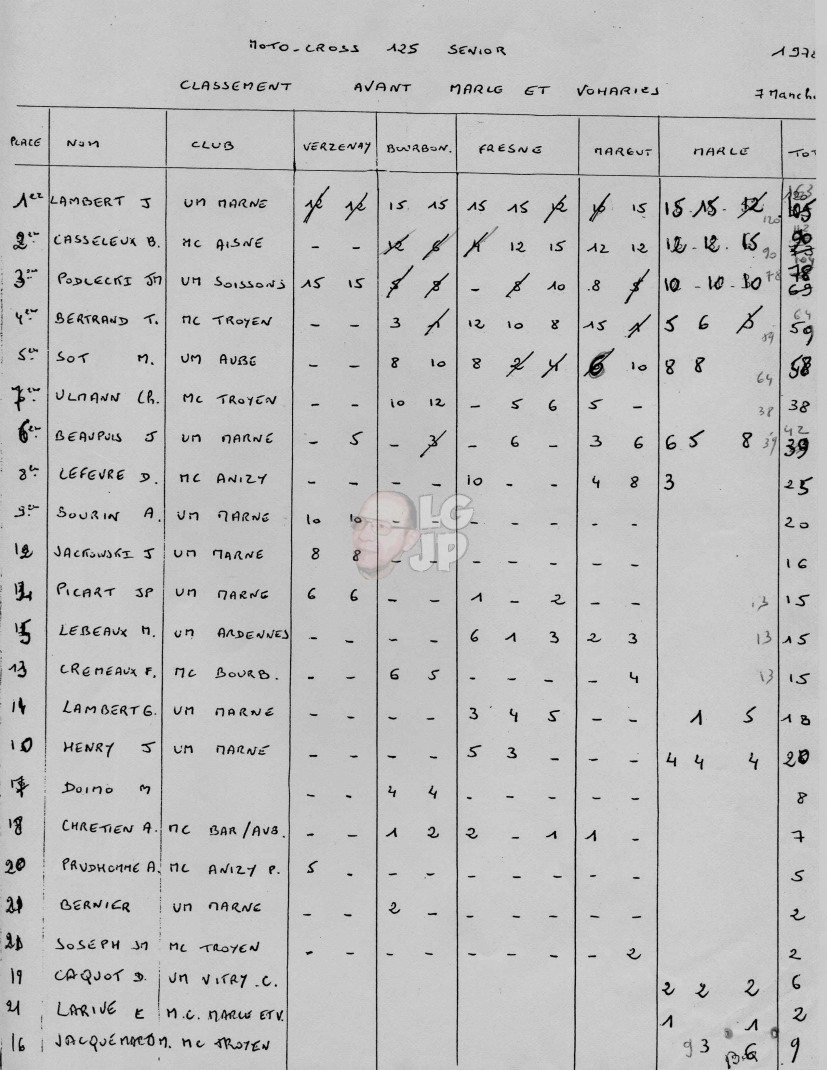 MOTO-CROSS 125 SENIOR
CLASSEMENT AVANT MARLE ET VOHARIES 7 Manch
PLACE NOM CLUB VERZENAY BOURBON. FRESNE MAREUT MARLE TOT
1er LAMBERT J UM MARNE 12 12 15 15 15 15 12 15 15 15 120 105
2em CASSELEUX B. MC AISNE - - 12 6 12 15 12 12 12 12 15 90 90
3em PODLECKI JM UM SOISSONS 15 15 8 8 - 8 10 8 10 10 10 78 78 69
4em BERTRAND T. MC TROYEN - - 3 1 12 10 8 15 1 5 6 59 64 59
5em SOT M. UM AUBE - - 8 10 8 2 4 6 10 8 8 64
7em ULMANN Ch. MC TROYEN - - 10 12 - 5 6 5 - 38 38
6em BEAUPUIS J UM MARNE - 5 - 3 - 6 - 3 6 6 5 8 39 42 39
8em LEFEVRE D. MC ANIZY - - - - 10 - - 4 8 3 25
9em BOURIN A. UM MARNE 10 10 - - - - - - - 20
12 JACKOWSKI J UM MARNE 8 8 - - - - - - - 16
PICART JP UM MARNE 6 6 - - 1 - 2 - - 13 15
15 LEBEAUX M. UM ARDENNES - - - - 6 1 3 2 3 13 15
13 CREMEAUX F. MC BOURB. - - 6 5 - - - - 4 13 15
14 LAMBERT G. UM MARNE - - - - 3 4 5 - - 1 5 18
10 HENRY J UM MARNE - - - - 5 3 - - - 4 4 4 20
17 DOIMO M - - 4 4 - - - - - 8
18 CHRETIEN A. MC BAR/AUB. - - 1 2 2 - 1 1 - 7
20 PRUDHOMME A. MC ANIZY P. 5 - - - - - - - - 5
21 BERNIER UM MARNE - - 2 - - - - - - 2
21 JOSEPH JM MC TROYEN - - - - - - - - 2 2
19 CAQUOT D. UM VITRY.C. 2 2 2 6
21 LARIVE E M.C. MARLE ET V. 1 1 2
16 JACQUEMARD M. MC TROYEN 9 3 6 9
LG
JP